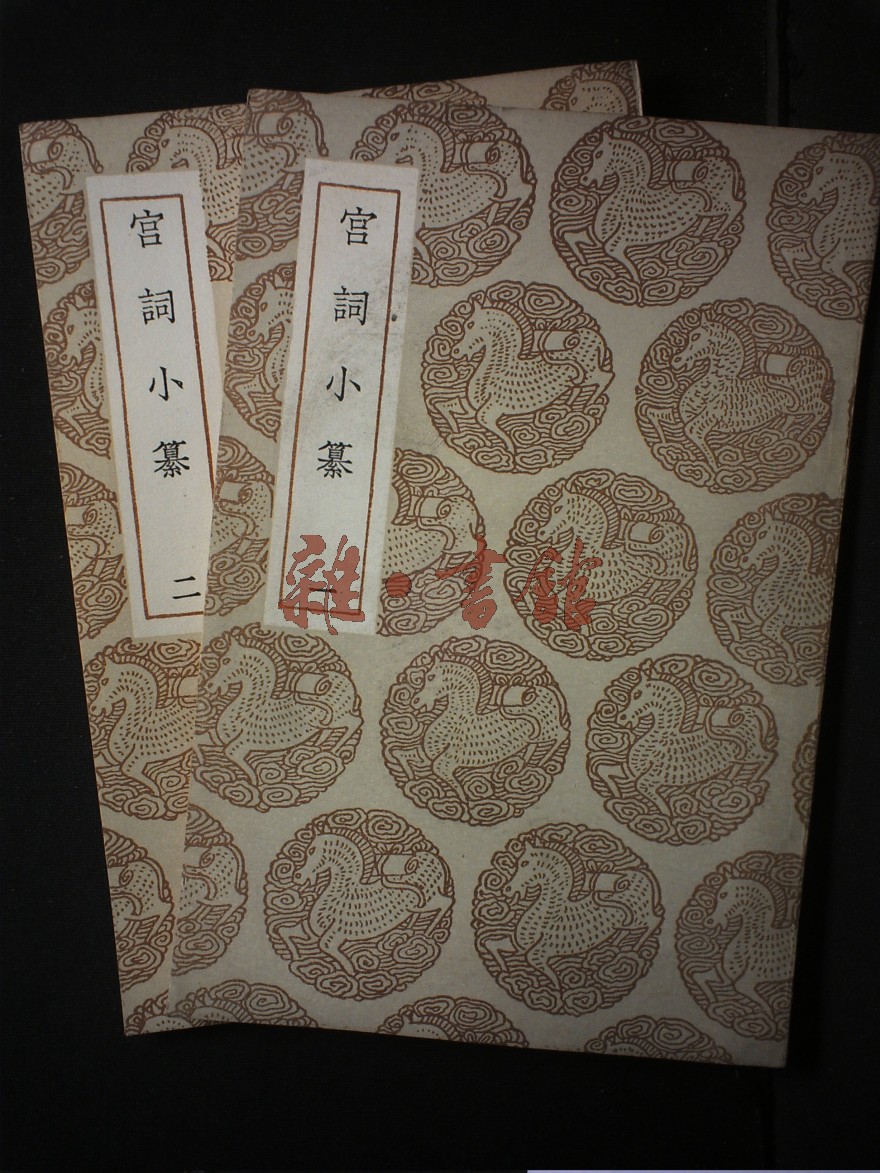 宮詞小纂
二
宮詞小纂
一
雜·書館